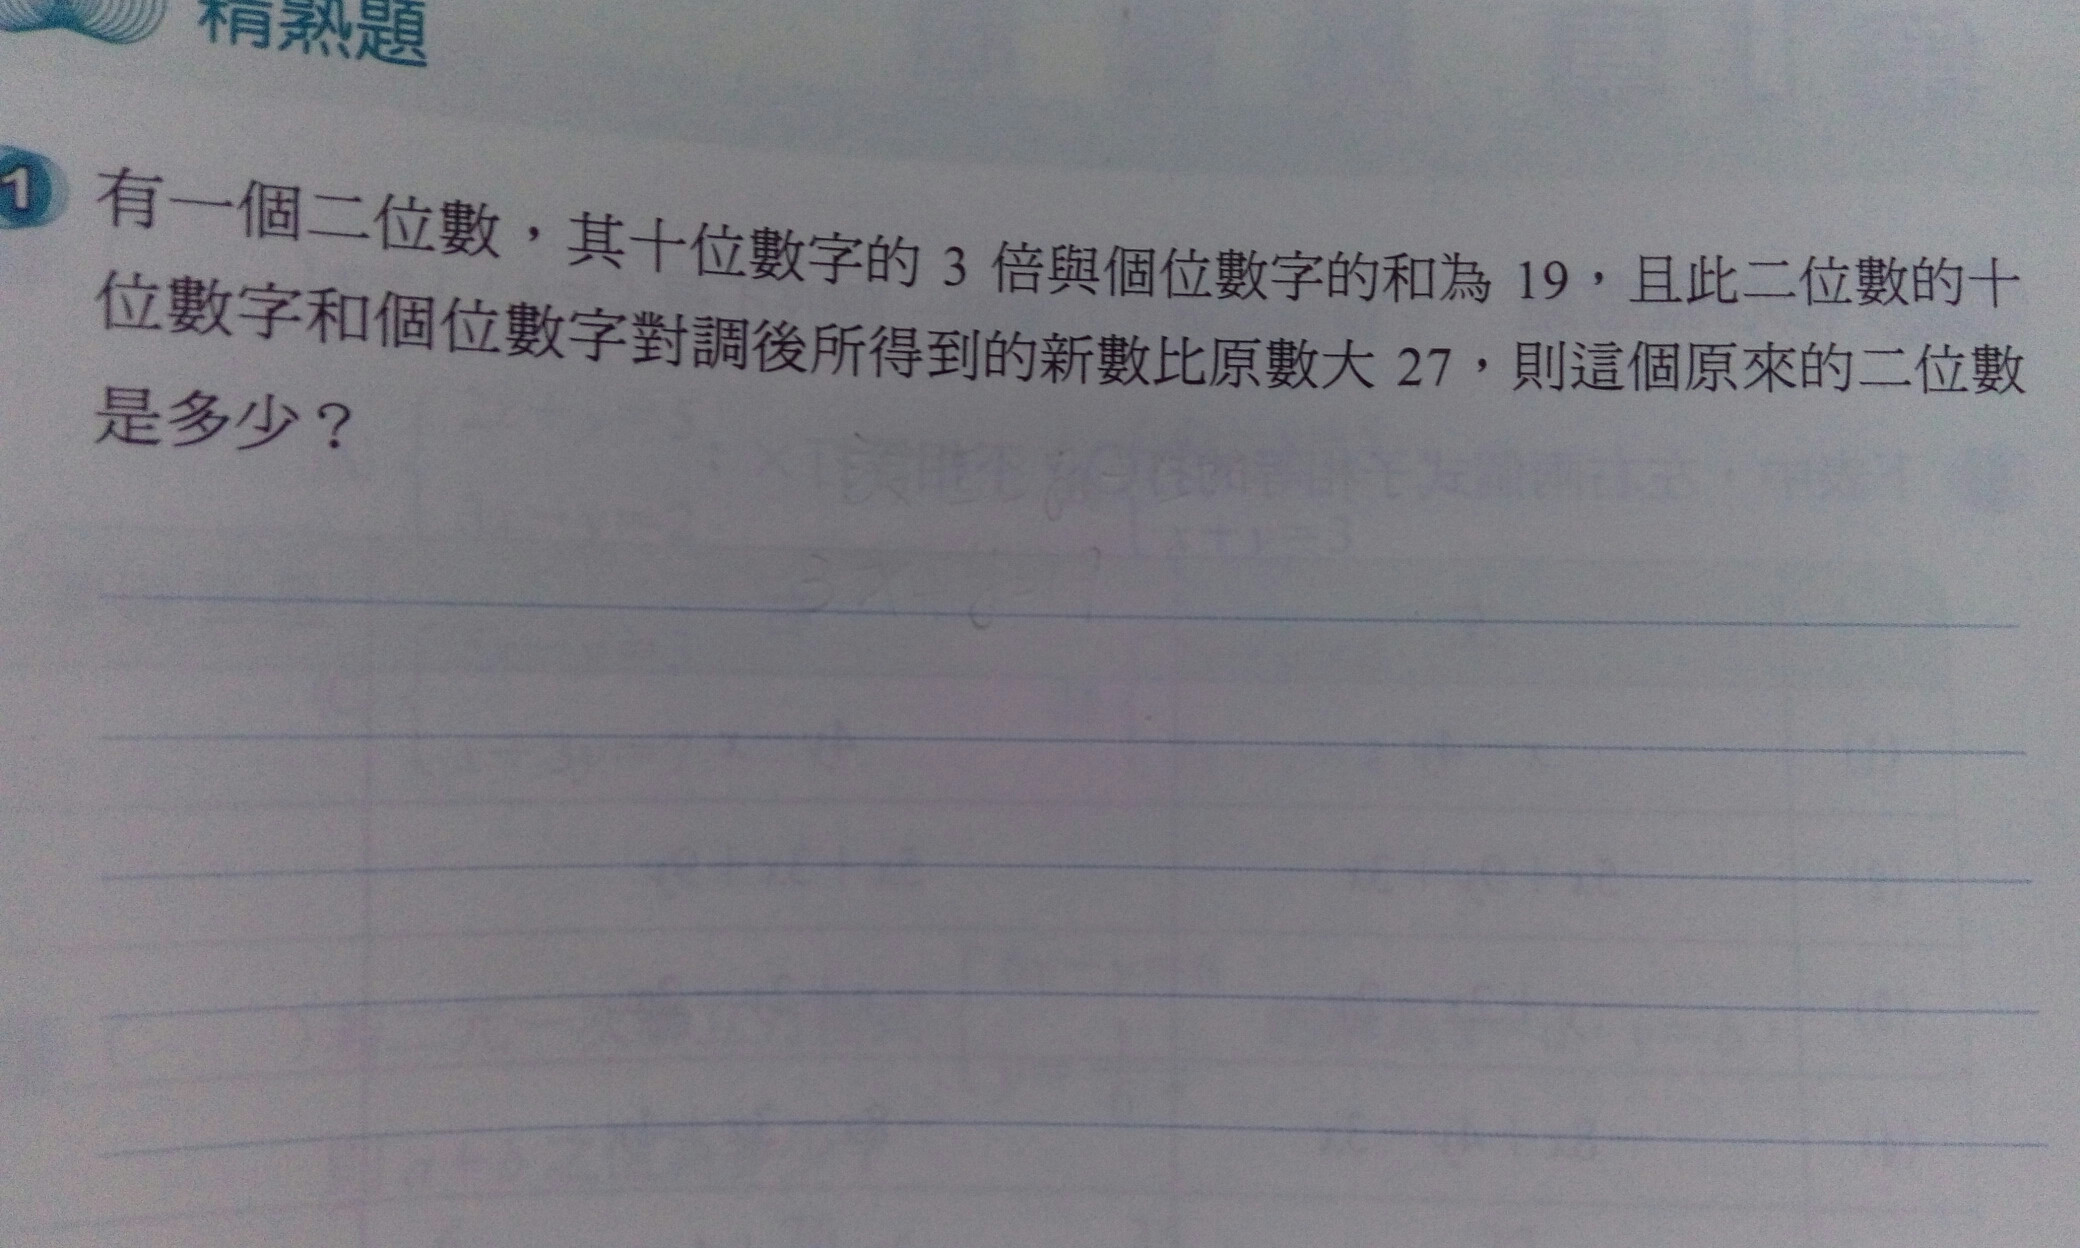 精熟題
1 有一個二位數,其十位數字的 3 倍與個位數字的和為 19,且此二位數的十
位數字和個位數字對調後所得到的新數比原數大 27,則這個原來的二位數
是多少?